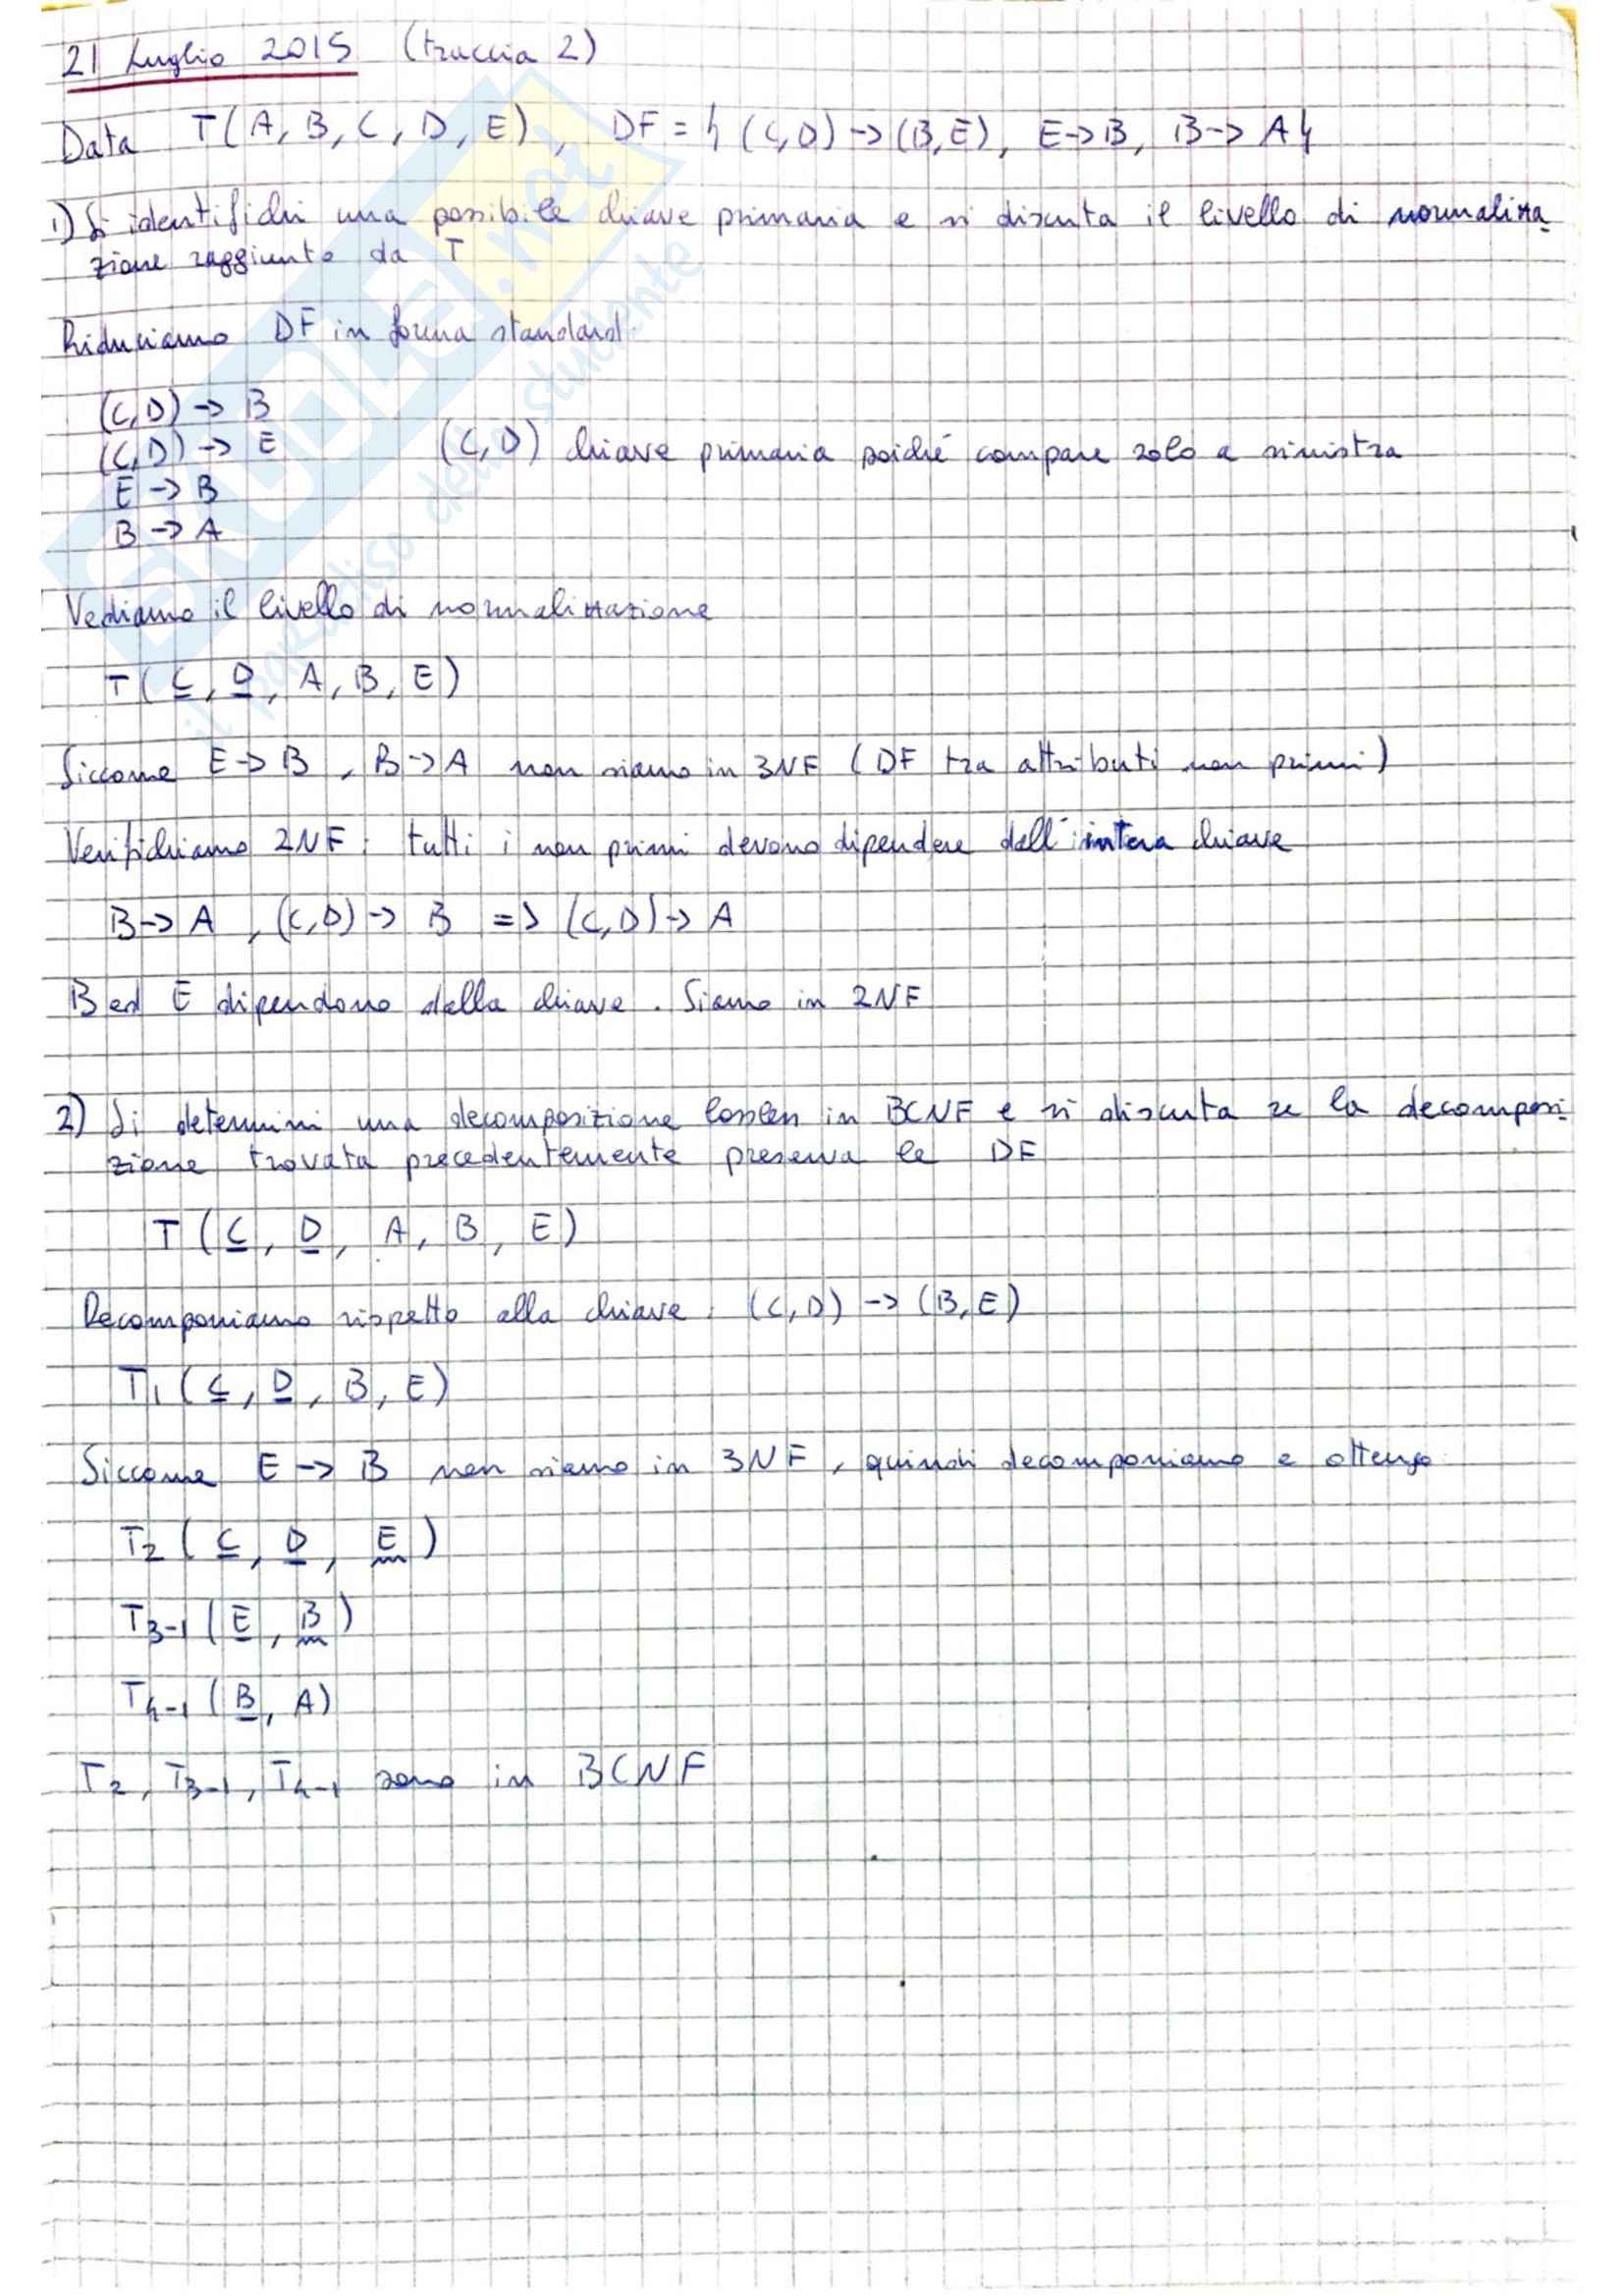 21 Luglio 2015 (traccia 2)
Data T(A, B, C, D, E), DF = { (C,D) -> (B,E), E->B, B->A }
1) Si identifichi una possibile chiave primaria e si discuta il livello di normalizza
zione raggiunto da T
Riduciamo DF in forma standard:
(C,D) -> B
(C,D) -> E (C,D) chiave primaria poiché compare solo a sinistra
E -> B
B -> A
Vediamo il livello di normalizzazione
T(C, D, A, B, E)
Siccome E->B, B->A non siamo in 3NF (DF tra attributi non primi)
Verifichiamo 2NF: tutti i non primi devono dipendere dall'intera chiave
B->A, (C,D)->B => (C,D)->A
B ed E dipendono dalla chiave. Siamo in 2NF
2) Si determini una decomposizione lossless in BCNF e si discuta se la decomposi
zione trovata precedentemente preserva le DF
T(C, D, A, B, E)
Decomponiamo rispetto alla chiave: (C,D) -> (B,E)
T1(C, D, B, E)
Siccome E -> B non siamo in 3NF, quindi decomponiamo e ottengo:
T2(C, D, E)
T3-1(E, B)
T4-1(B, A)
T2, T3-1, T4-1 sono in BCNF
SKUOLA.net
il paradiso dello studente